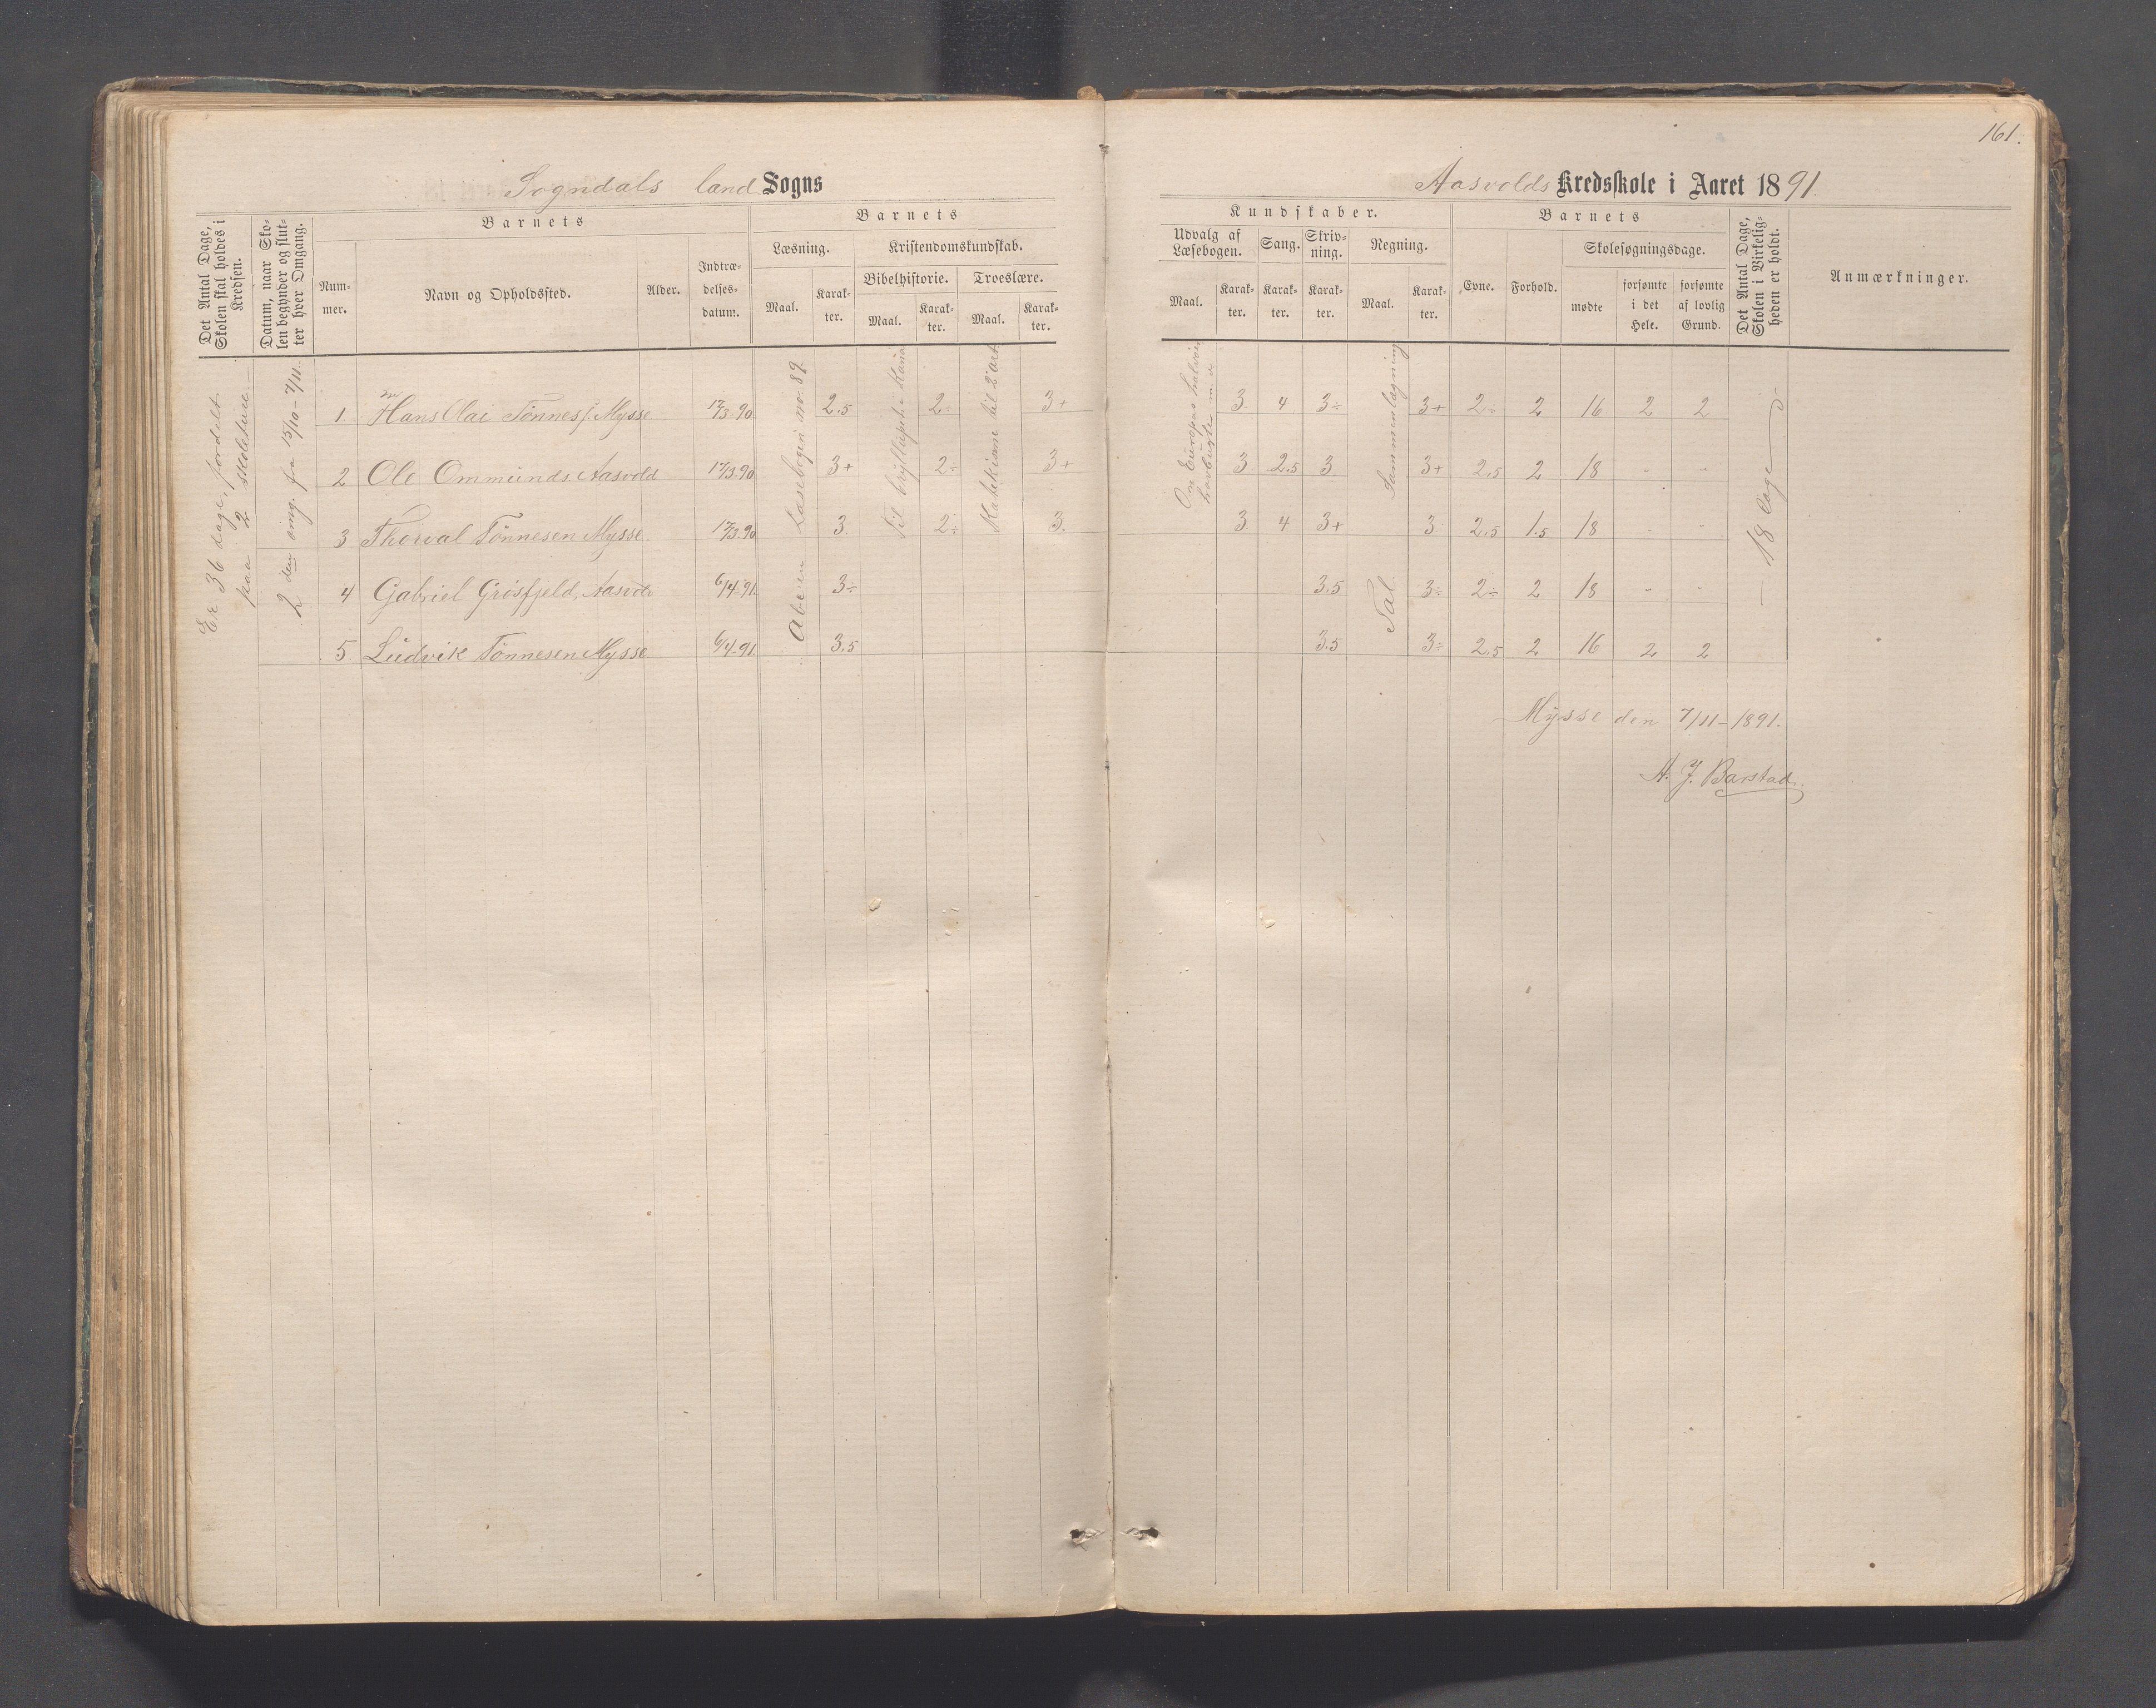 161.
Sogndals land Sogns
Aasvolds Kredsskole i Aaret 1891.
Det Antal Dage, Skolen skal holdes i Kredsen.
Datum, naar Skolen begynder og slutter hver Omgang.
Barnets
Nummer.
Navn og Opholdssted.
Alder.
Indtrædelsesdatum.
Barnets
Læsning.
Maal.
Karakter.
Kristendomskundskab.
Bibelhistorie.
Maal.
Karakter.
Troeslære.
Maal.
Karakter.
Kundskaber.
Udvalg af Læsebogen.
Maal.
Karakter.
Sang.
Karakter.
Skrivning.
Karakter.
Regning.
Maal.
Karakter.
Barnets
Evne.
Forhold.
Skolesøgningsdage.
mødte
forsømte i det Hele.
forsømte af lovlig Grund.
Det Antal Dage, Skolen i Virkeligheden er holdt.
Anmærkninger.
Er 36 dage, fordelt
paa 2 skoleture.
2 den omg. fra 15/10 - 7/11.
Læsebogen no. 89.
Abcen
Til brylluppet i Kana
Katekisme til 2 art.
Om Europas halvøer
havbugter m. v.
Sammenlægning
Tal.
18 dage
1. Hans Olai Tønnes. Mysse 17/3-90 2.5 2÷ 3+ 3 4 3÷ 3+ 2÷ 2 16 2 2
2 Ole Ommunds. Aasvold 17/3-90 3+ 2÷ 3+ 3 2.5 3 3+ 2.5 2 18 - -
3 Thorval Tønnesen Mysse. 17/3-90 3 2÷ 3. 3 4 3+ 3 2.5 1.5 18 - -
4 Gabriel Grøsfjeld, Aasvold 6/4-91. 3÷ 3.5 3÷ 2÷ 2 18 - -
5. Ludvik Tønnesen Mysse. 6/4-91. 3.5 3.5 3÷ 2.5 2 16 2 2
Mysse den 7/11-1891.
A. J. Barstad.